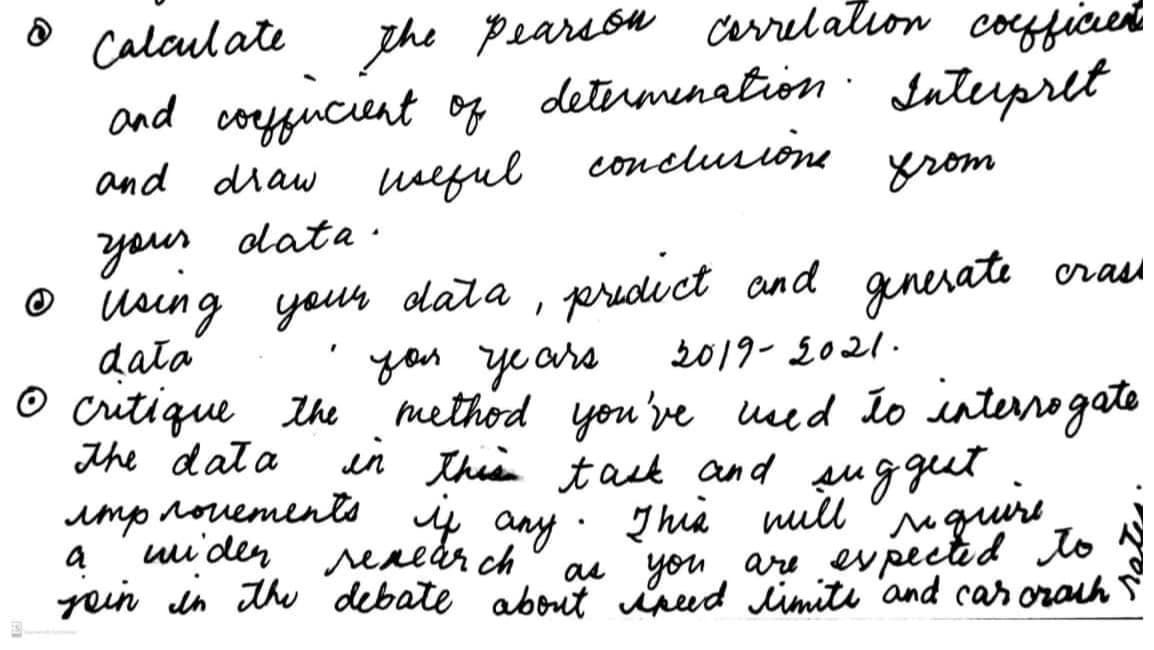 Calculate the Pearson correlation coefficient
and coefficient of determination. Interpret
and draw useful conclusions from
your data.
Using your data, predict and generate crash
data for years 2019-2021.
Critique the method you've used to interrogate
the data in this task and suggest
improvements if any. This will require
a wider research as you are expected to
join in the debate about speed limits and car crash